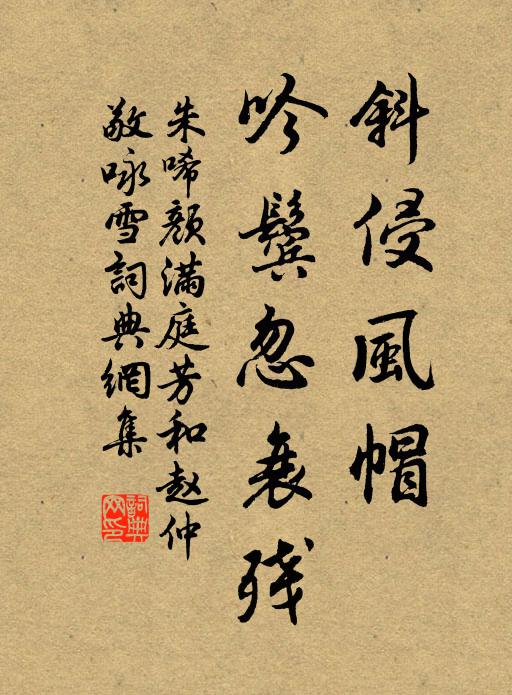 斜侵風帽
吟鬢忽衰殘
朱唏顏滿庭芳和赵仲
敬咏雪詞典網集
詞典
网印